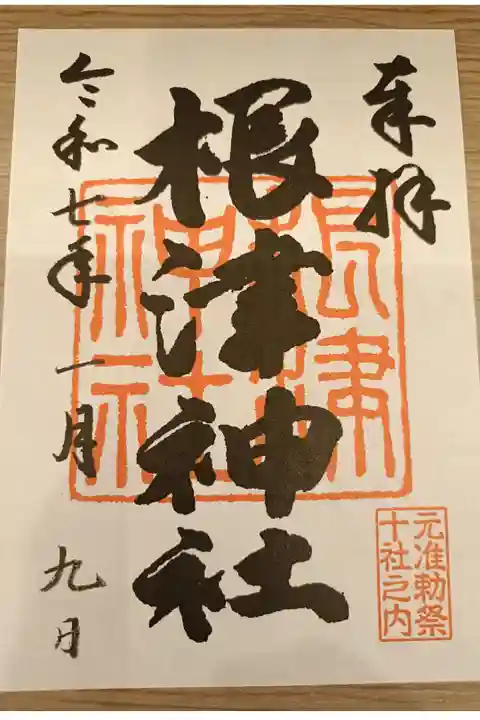 奉拝
根津神社
令和七年一月九日
根津
神社
元准勅祭
十社之内